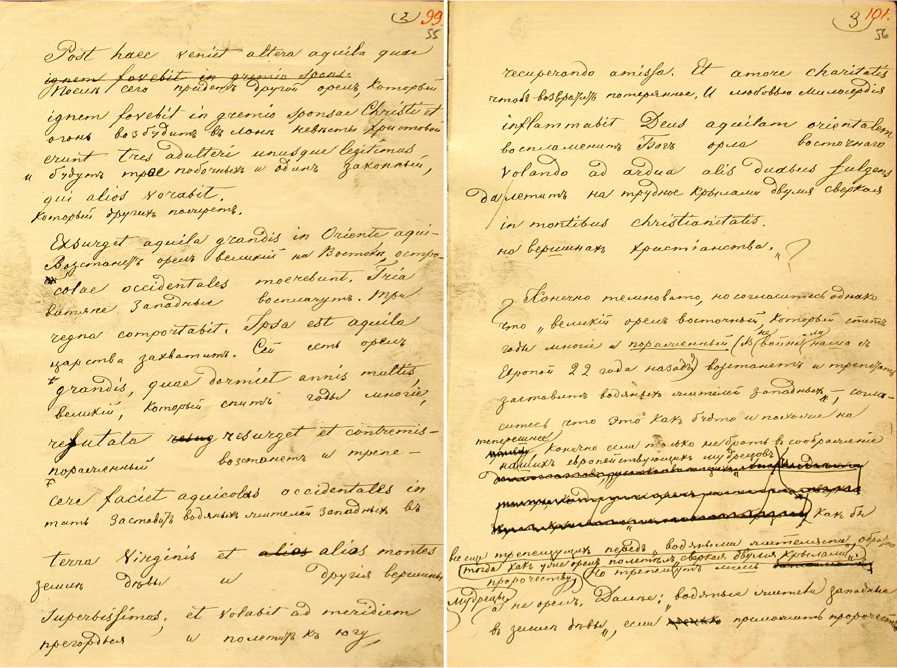 2 99
55
Post haec veniet altera aquila quae
ignem fovebit in gremio spons.
Послѣ сего прiидетъ другой орелъ который
ignem fovebit in gremio sponsae Christi et
огонь возбудитъ въ лонѣ невѣсты Христовой
erunt tres adulteri unusque legitimus
и будутъ трое побочныхъ и одинъ законный,
qui alios vorabit.
который другихъ пожретъ.
Exsurget aquila grandis in Oriente aqui-
Возстанетъ орелъ великiй на Востокѣ, остро-
colae occidentales moerebunt. Tria
витяне западные восплачутъ. Три
regna comportabit. Ipsa est aquila
царства захватитъ. Сей есть орелъ
grandis, quae dormiet annis multis,
великiй, который спитъ годы многiе,
refutata resurget et contremis-
пораженный возстанетъ и трепе-
cere faciet aquicolas occidentales in
тать заставитъ водяныхъ жителей западныхъ въ
terra Virginis et alios alios montes
земли Дѣвы и другiя вершины
superbissimos, et volabit ad meridiem
прегордыя и полетитъ къ югу,
3 101.
56
recuperando amissa. Et amore charitatis
чтобъ возвратить потерянное. И любовью милосердiя
inflammabit Deus aquilam orientalem
воспламенитъ Богъ орла восточнаго
volando ad ardua alis duabus fulgens
Да летитъ на трудное крылами двумя сверкая
in montibus christianitatis.
на вершинахъ христiанства. "?
Конечно темновато, но согласитесь однако
что "великiй орелъ восточный, который спитъ
годы многiе и пораженный (не въ войнѣ ли нашей съ
Европой 22 года назадъ?) возстанетъ и трепетать
заставитъ водяныхъ жителей западныхъ", согла-
ситесь что это какъ будто и похоже на
теперешнее
Конечно если только не брать въ соображенiе
нашихъ европействующихъ мудрецовъ
какъ бы
трепещущихъ передъ водяными жителями,
тогда какъ уже орелъ полетѣлъ "сверкая двумя крылами"
пророчеству, Но трепещутъ лишь
мудрецы,
а не орелъ. Далѣе: "водяные жители западные
въ земли Дѣвы", если приложить пророчест